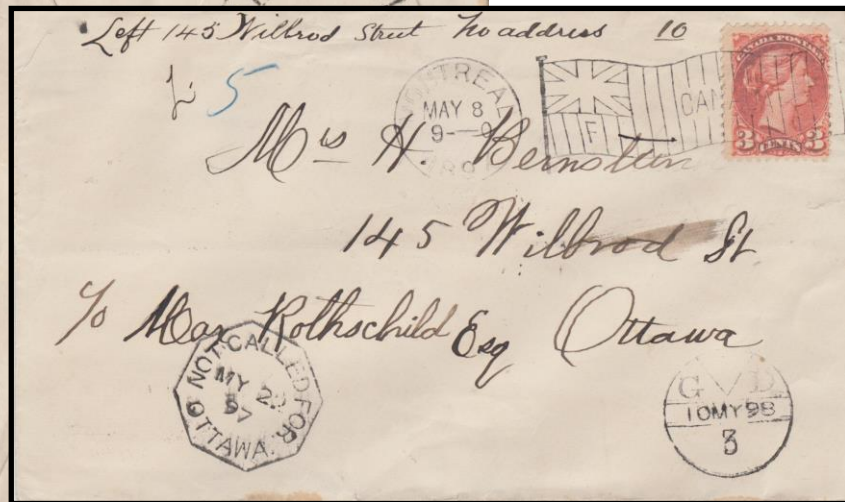 Left 145 Wilbrod Street no address 10
L 5
MONTREAL
MAY 8
9-0
189
F
CAN
CANADA POSTAGE
3 CENTS 3
Mrs H. Bernstein
145 Wilbrod St
c/o Max Rothschild Esq Ottawa
NOT CALLED FOR
MY 2
97
OTTAWA
G D
10MY98
3